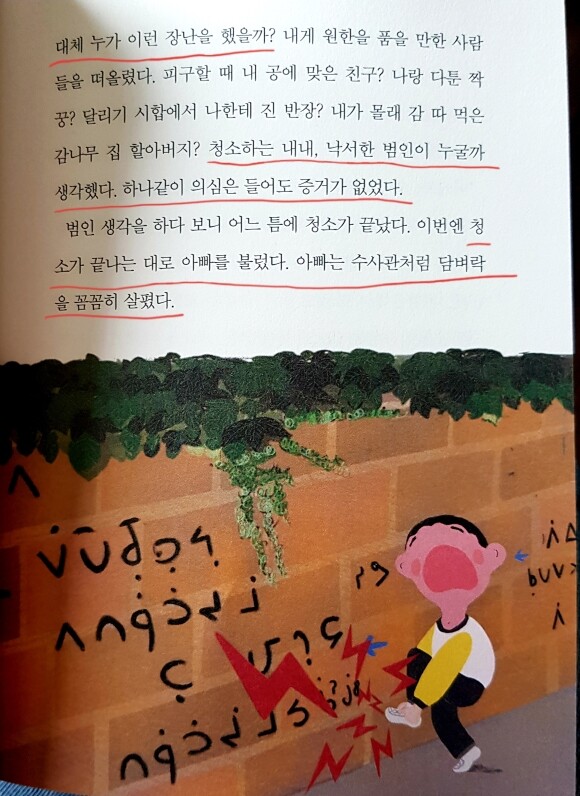 대체 누가 이런 장난을 했을까? 내게 원한을 품을 만한 사람
들을 떠올렸다. 피구할 때 내 공에 맞은 친구? 나랑 다툰 짝
꿍? 달리기 시합에서 나한테 진 반장? 내가 몰래 감 따 먹은
감나무 집 할아버지? 청소하는 내내, 낙서한 범인이 누굴까
생각했다. 하나같이 의심은 들어도 증거가 없었다.
범인 생각을 하다 보니 어느 틈에 청소가 끝났다. 이번엔 청
소가 끝나는 대로 아빠를 불렀다. 아빠는 수사관처럼 담벼락
을 꼼꼼히 살폈다.